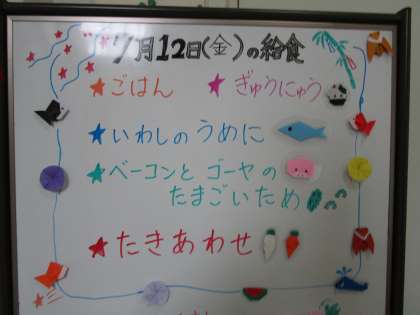 7月12日(金)の給食
★ごはん ★ぎゅうにゅう
★いわしのうめに
★ベーコンと ゴーヤの
たまごいため
★たきあわせ